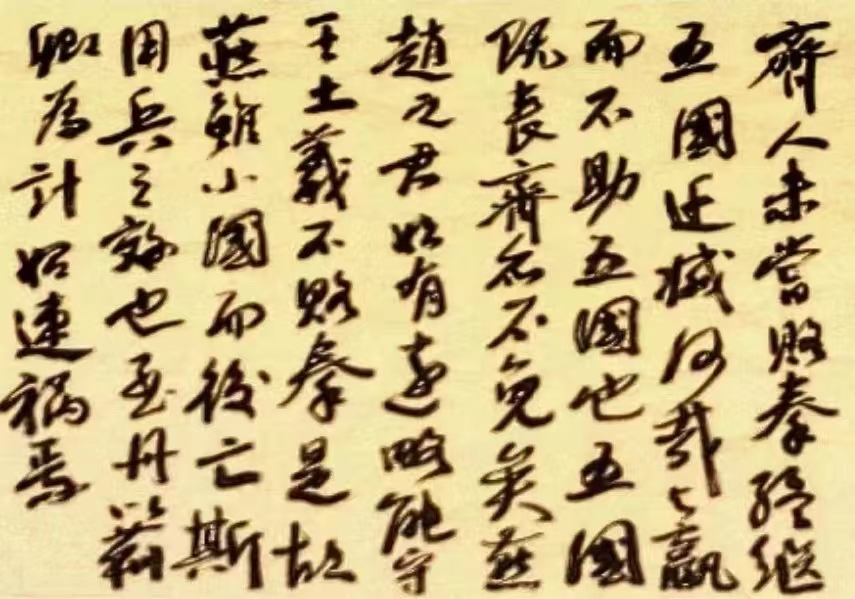 齊人未嘗賂秦終繼
五國遷滅何哉與嬴
而不助五國也五國
既喪齊亦不免矣燕
趙之君始有遠略能守
其土義不賂秦是故
燕雖小國而後亡斯
用兵之效也至丹以荊
卿為計始速禍焉